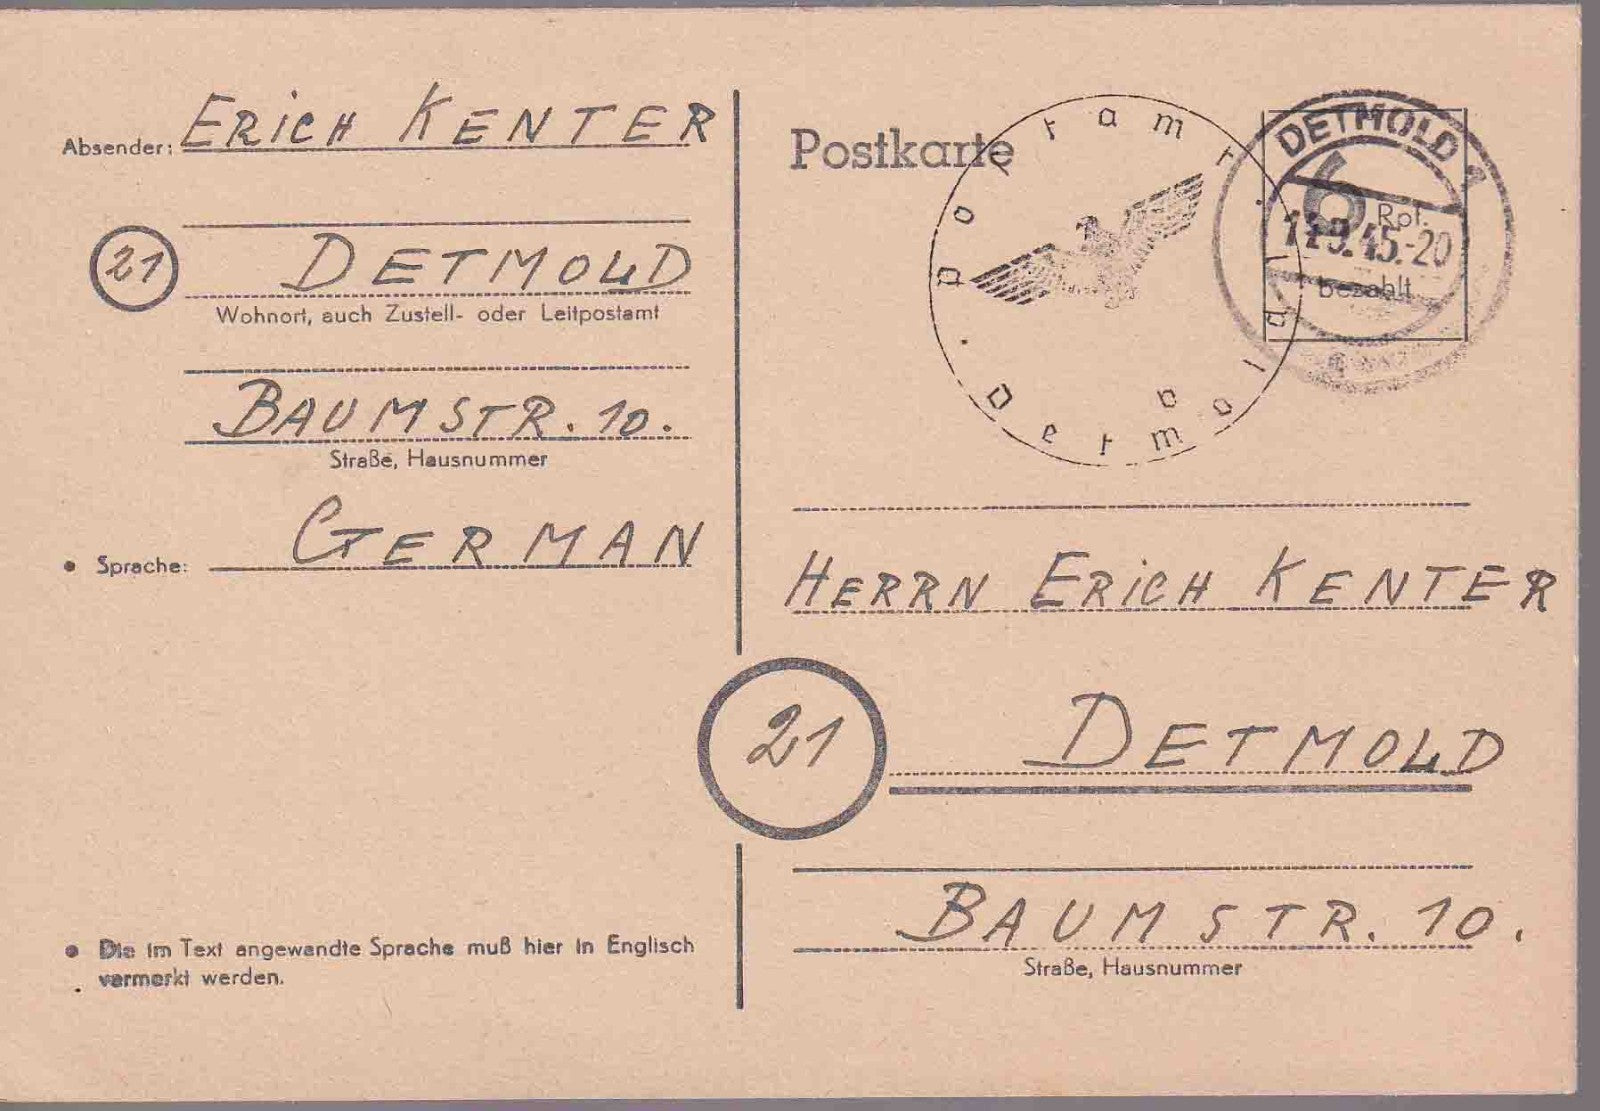 Absender: ERICH KENTER
21 DETMOLD
Wohnort, auch Zustell- oder Leitpostamt
BAUMSTR. 10.
Straße, Hausnummer
• Sprache: GERMAN
• Die im Text angewandte Sprache muß hier in Englisch
vermerkt werden.
Postkarte
Postamt
Detmold
DETMOLD 1
6 Rpf.
9.45.-20
bezahlt
HERRN ERICH KENTER
21 DETMOLD
BAUMSTR. 10.
Straße, Hausnummer